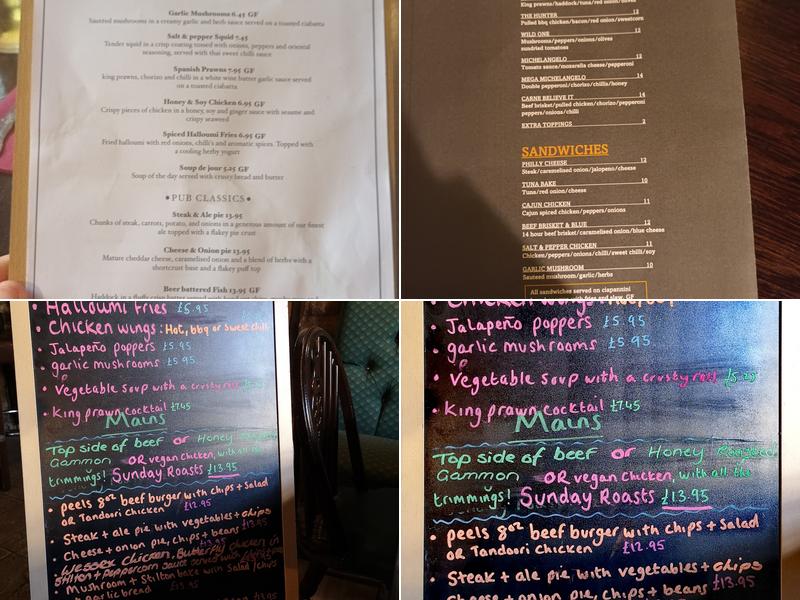 Garlic Mushrooms 6.45 GF
Sauteed mushrooms in a creamy garlic and herb sauce served on a toasted ciabatta
Salt & pepper Squid 7.45
Tender squid in a crisp coating tossed with onions, peppers and oriental
seasoning, served with thai sweet chilli sauce
Spanish Prawns 7.95 GF
king prawns, chorizo and chilli in a white wine butter garlic sauce served
on a toasted ciabatta
Honey & Soy Chicken 6.95 GF
Crispy pieces of chicken in a honey, soy and ginger sauce with sesame and
crispy seaweed
Spiced Halloumi Fries 6.95 GF
Fried halloumi with red onions, chilli's and aromatic spices. Topped with
a cooling herby yogurt
Soup de jour 5.45 GF
Soup of the day served with crusty bread and butter
•PUB CLASSICS•
Steak & Ale pie 13.95
Chunks of steak, carrots, potato, and onions in a generous amount of our finest
ale topped with a flakey pie crust
Cheese & Onion pie 12.95
Mature cheddar cheese, caramelised onion and a blend of herbs with a
shortcrust base and a flakey puff top
Beer battered Fish 13.95 GF
Haddock in a fluffy crisp batter served with
King prawns/haddock/tuna/red onion/olives
THE HUNTER 12
Pulled bbq chicken/bacon/red onion/sweetcorn
WILD ONE 12
Mushrooms/peppers/onions/olives
sundried tomatoes
MICHELANGELO 12
Tomato sauce/mozarella cheese/pepperoni
MEGA MICHELANGELO 14
Double pepperoni/chorizo/chilli/honey
CARNE BELIEVE IT 14
Beef brisket/pulled chicken/chorizo/pepperoni
peppers/onions/chilli
EXTRA TOPPINGS 2
SANDWICHES
PHILLY CHEESE 12
Steak/caramelised onion/jalapeno/cheese
TUNA BAKE 10
Tuna/red onion/cheese
CAJUN CHICKEN 11
Cajun spiced chicken/peppers/onions
BEEF BRISKET & BLUE 12
14 hour beef brisket/caramelised onion/blue cheese
SALT & PEPPER CHICKEN 11
Chicken/peppers/onions/chilli/sweet chilli/soy
GARLIC MUSHROOM 10
Sauteed mushroom/garlic/herbs
All sandwiches served on ciapannini
with fries and slaw. GF
Halloumi Fries £5.95
• Chicken wings: Hot, bbq or Sweet chilli
• Jalapeño poppers £5.95
• garlic mushrooms £5.95
• Vegetable soup with a crusty roll
• King prawn cocktail £7.45
Mains
Top side of beef or Honey Roasted
Gammon OR vegan chicken, with all the
trimmings! Sunday Roasts £13.95
• peels 8oz beef burger with chips + Salad
OR Tandoori Chicken £12.95
• Steak + ale pie with vegetables + chips
• Cheese + onion pie, chips + beans £13.95
• Wessex Chicken, Butterfly chicken in
Stilton + peppercorn sauce served with
• Mushroom + Stilton bake with Salad/chips
+ garlic bread
Chicken wings:
• Jalapeño poppers £5.95
• garlic mushrooms £5.95
• Vegetable soup with a crusty roll
• King prawn cocktail £7.45
Mains
Top side of beef or Honey Roasted
Gammon OR vegan chicken, with all the
trimmings! Sunday Roasts £13.95
• peels 8oz beef burger with chips + Salad
OR Tandoori Chicken £12.95
• Steak + ale pie with vegetables + chips
• Cheese + onion pie, chips + beans £13.95